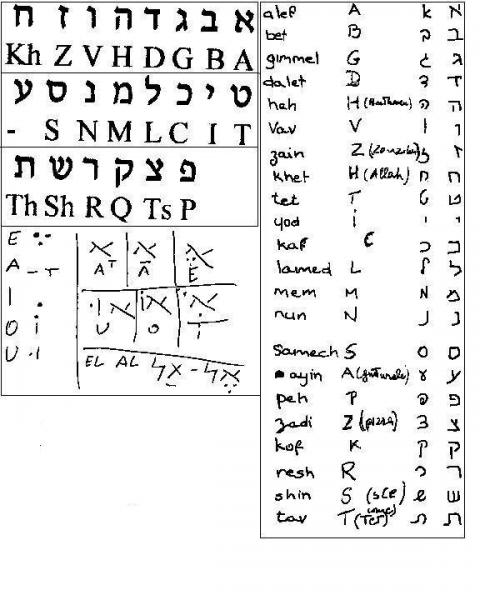 א ב ג ד ה ו ז ח
Kh Z V H D G B A
ט י כ ל מ נ ס ע
- S N M L C I T
פ צ ק ר ש ת
Th Sh R Q Ts P
E
A
I
O
U
אָ אַ אֵ
AT A E
אוּ אוֹ אִ
U O I
EL AL אַל - אֶל
alef A א א
bet B ב ב
gimmel G ג ג
dalet D ד ד
heh H ה ה
Vav V ו ו
zain Z ז ז
khet H (Allah) ח ח
tet T ט ט
yod i י י
kaf C כ כ
lamed L ל ל
mem M מ מ
nun N נ נ
Samech S ס ס
ayin A ע ע
peh P פ פ
zadi Z (pizza) צ צ
kof K ק ק
resh R ר ר
shin S (sce) ש ש
tav T ת ת